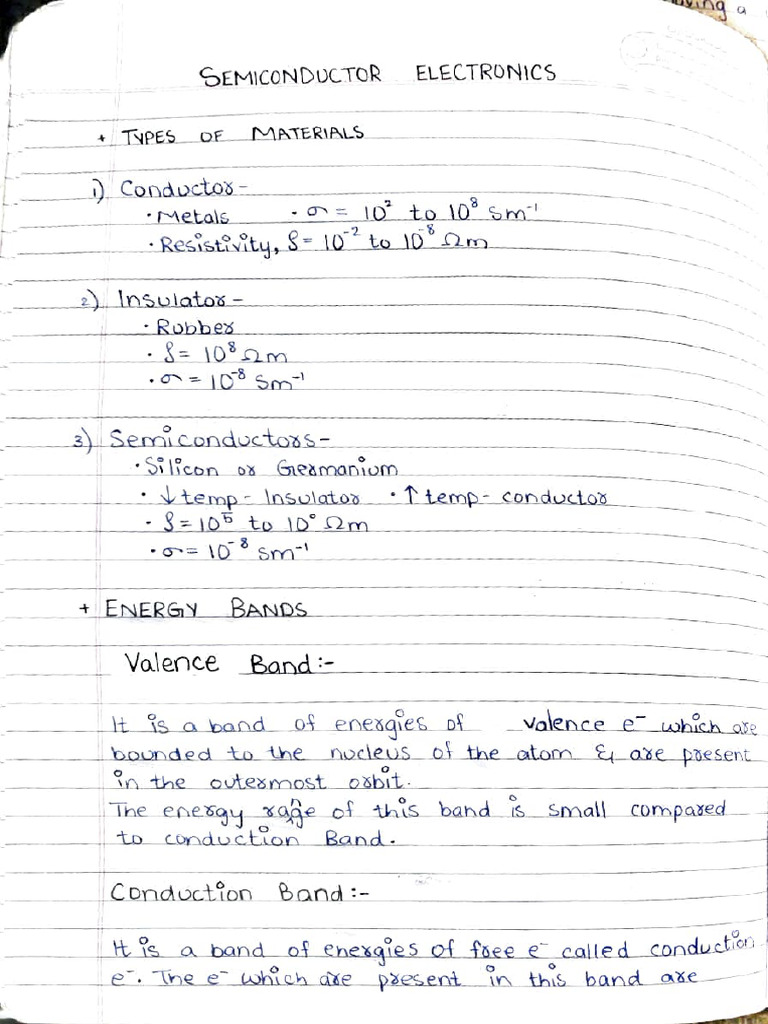 ving a
SEMICONDUCTOR ELECTRONICS
+ TYPES OF MATERIALS
1) Conductor-
· Metals · σ = 10² to 10⁸ Sm⁻¹
· Resistivity, ρ = 10⁻² to 10⁻⁸ Ωm
2) Insulator-
· Rubber
· ρ = 10⁸ Ωm
· σ = 10⁻⁸ Sm⁻¹
3) Semiconductors-
· Silicon or Germanium
· ↓ temp - Insulator · ↑ temp - conductor
· ρ = 10⁵ to 10° Ωm
· σ = 10⁻⁸ Sm⁻¹
+ ENERGY BANDS
Valence Band:-
It is a band of energies of valence e⁻ which are
bounded to the nucleus of the atom & are present
in the outermost orbit.
The energy range of this band is small compared
to conduction Band.
Conduction Band:-
It is a band of energies of free e⁻ called conduction
e⁻. The e⁻ which are present in this band are